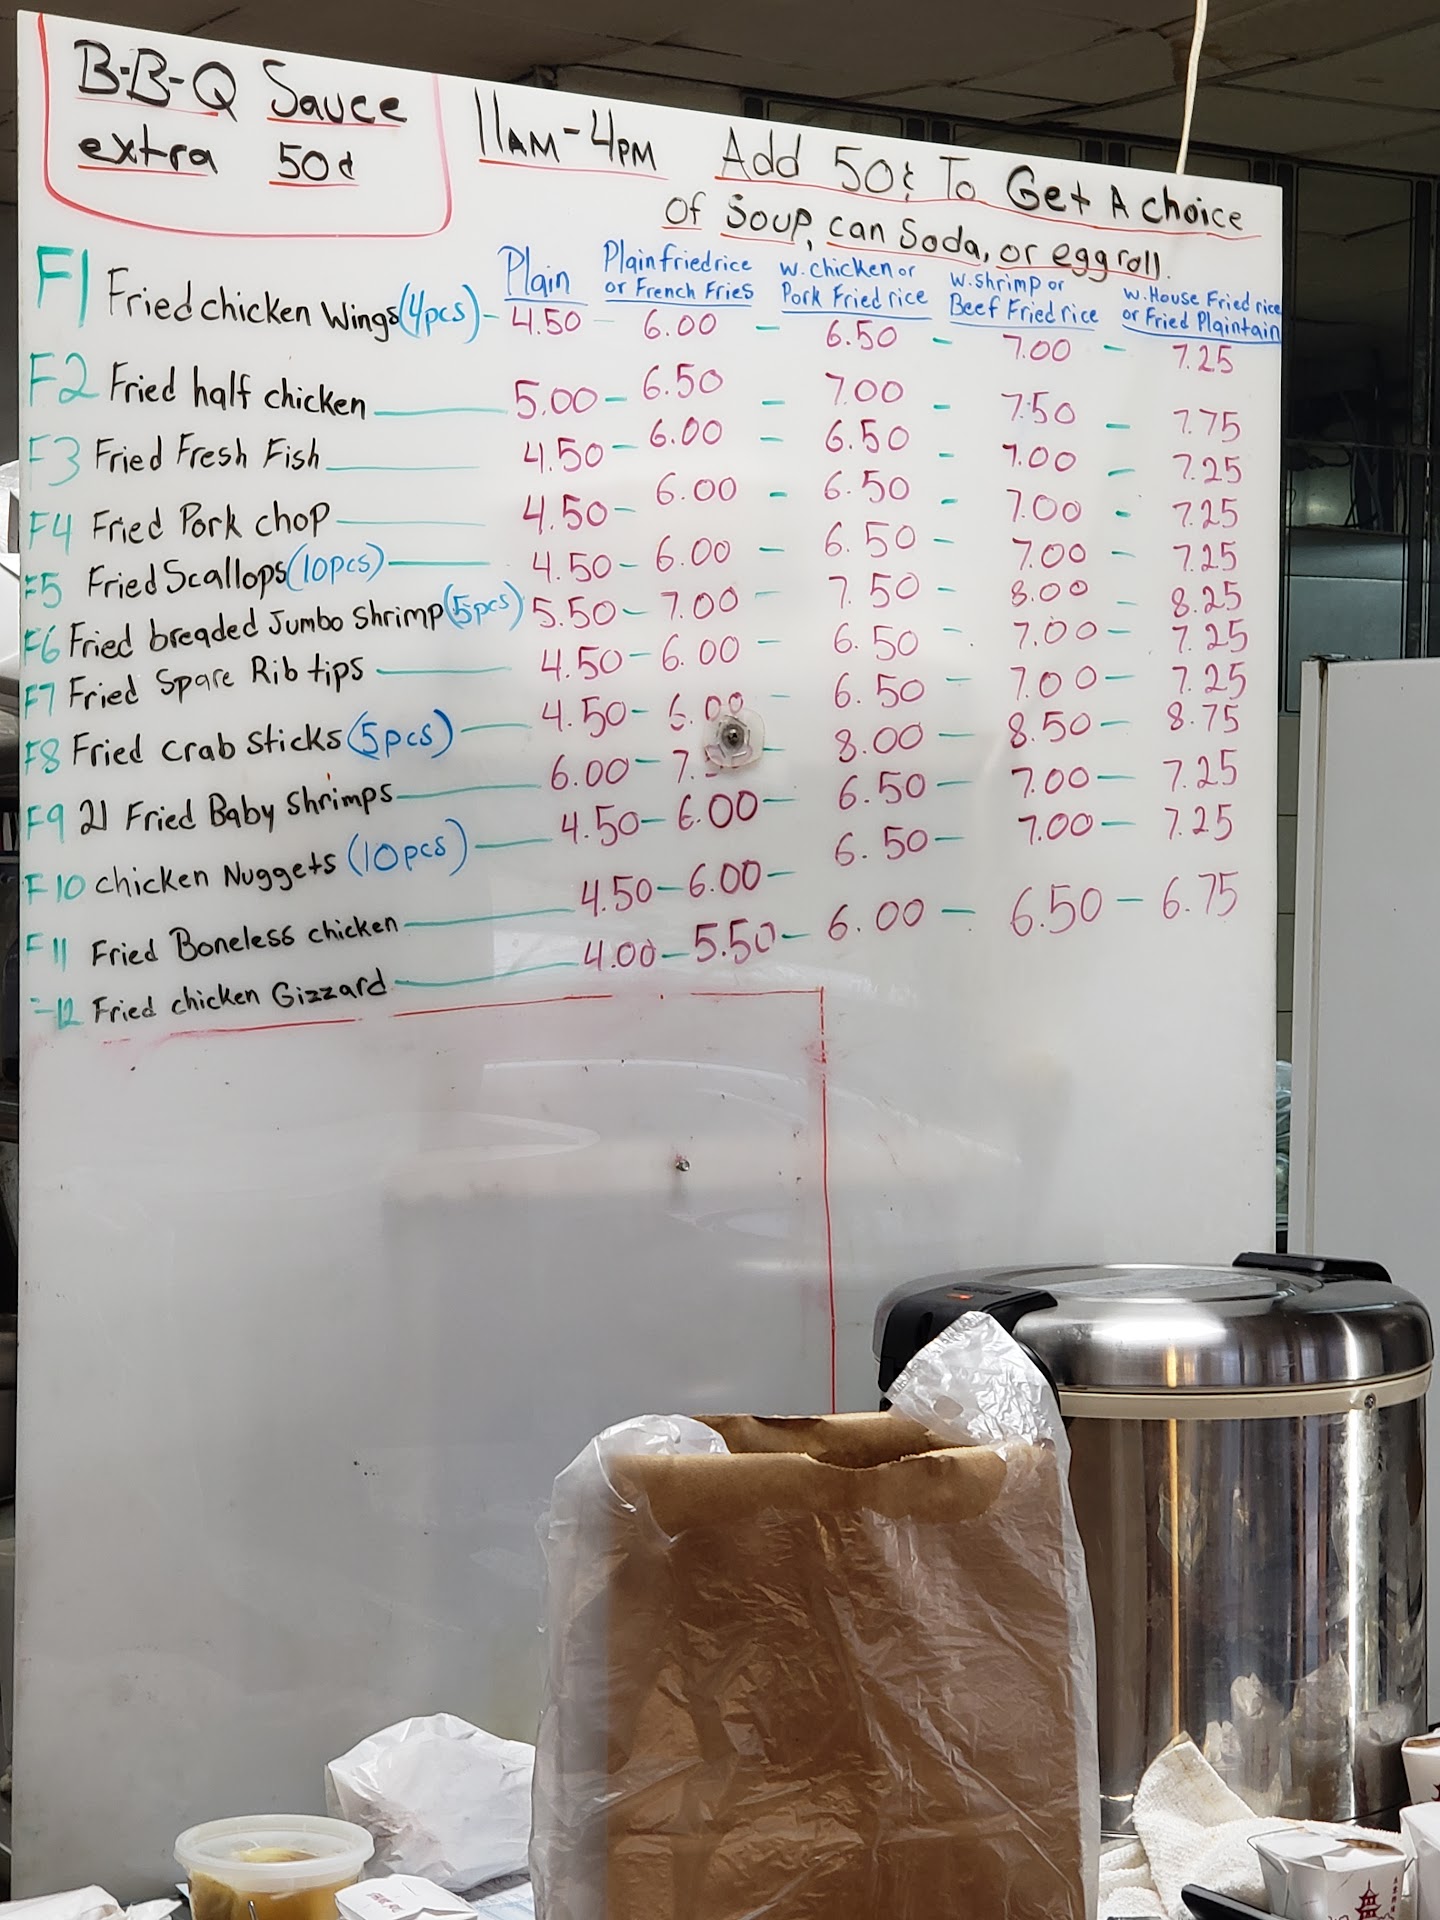 B-B-Q Sauce
extra 50¢
11AM-4PM Add 50¢ To Get A choice
Of Soup, can Soda, or egg roll.
Plain
Plain fried rice
or French Fries
w. chicken or
Pork Fried rice
w. Shrimp or
Beef Fried rice
w. House Fried rice
or Fried Plaintain
F1 Fried chicken Wings (4pcs) - 4.50 - 6.00 - 6.50 - 7.00 - 7.25
F2 Fried half chicken 5.00 - 6.50 - 7.00 - 7.50 - 7.75
F3 Fried Fresh Fish 4.50 - 6.00 - 6.50 - 7.00 - 7.25
F4 Fried Pork chop 4.50 - 6.00 - 6.50 - 7.00 - 7.25
F5 Fried Scallops (10pcs) 4.50 - 6.00 - 6.50 - 7.00 - 7.25
F6 Fried breaded Jumbo Shrimp (5pcs) 5.50 - 7.00 - 7.50 - 8.00 - 8.25
F7 Fried Spare Rib tips 4.50 - 6.00 - 6.50 - 7.00 - 7.25
F8 Fried crab Sticks (5pcs) 4.50 - 6.00 - 6.50 - 7.00 - 7.25
F9 21 Fried Baby Shrimps 6.00 - 8.00 - 8.50 - 8.75
F10 chicken Nuggets (10pcs) 4.50 - 6.00 - 6.50 - 7.00 - 7.25
F11 Fried Boneless chicken 4.50 - 6.00 - 6.50 - 7.00 - 7.25
F12 Fried chicken Gizzard 4.00 - 5.50 - 6.00 - 6.50 - 6.75